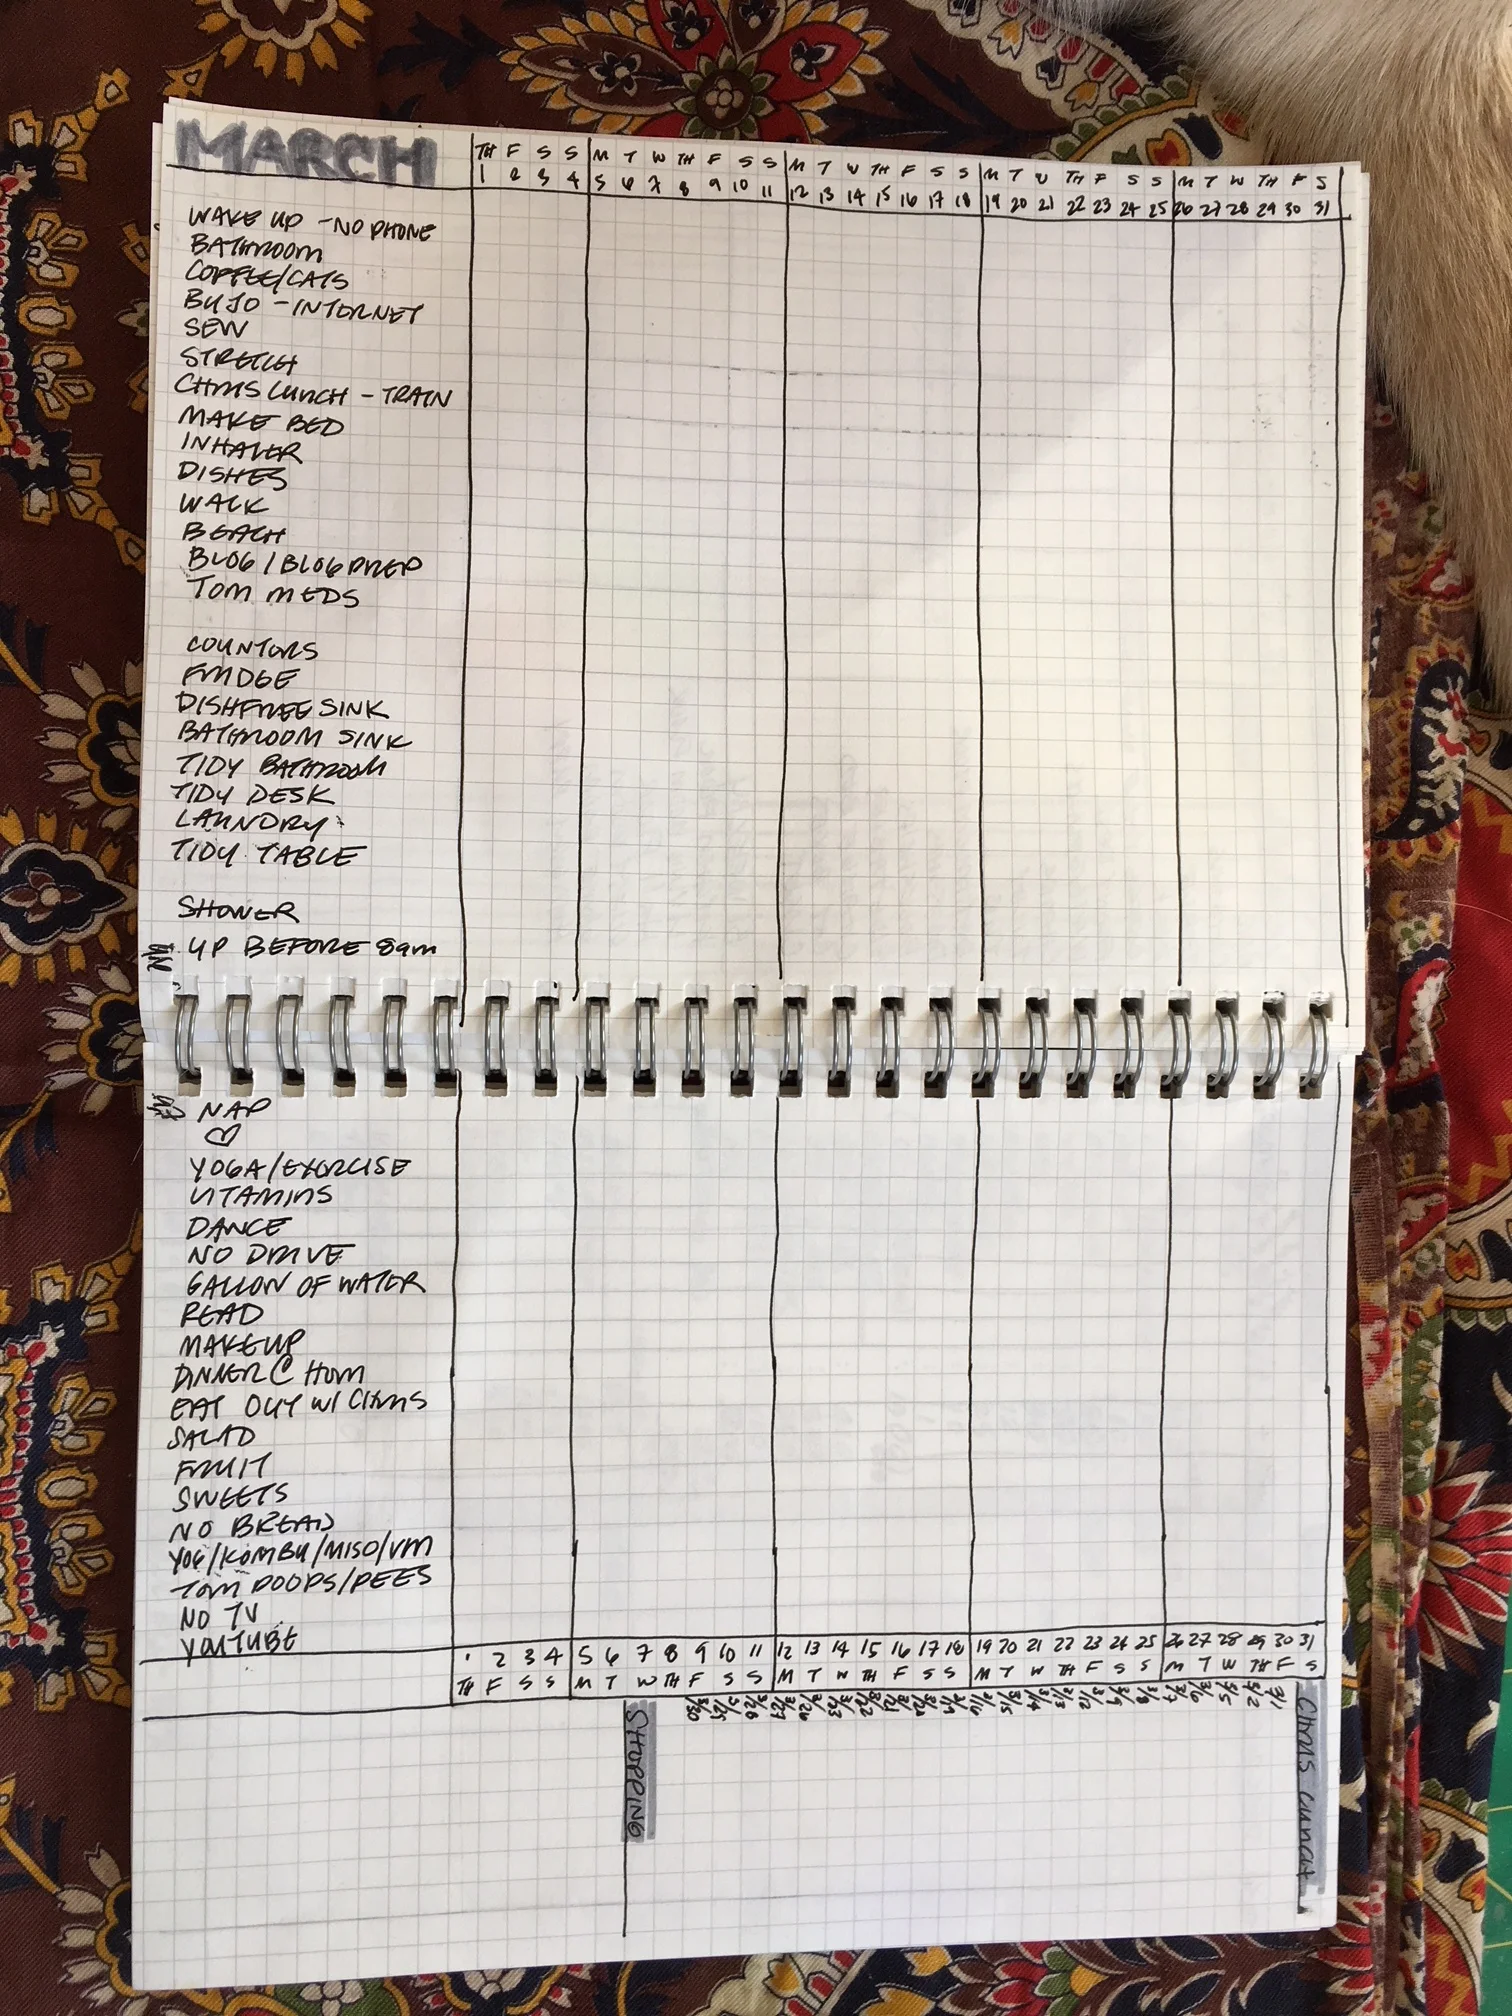 MARCH
TH F S S M T W TH F S S M T W TH F S S M T W TH F S S M T W TH F S
1 2 3 4 5 6 7 8 9 10 11 12 13 14 15 16 17 18 19 20 21 22 23 24 25 26 27 28 29 30 31
WAKE UP - NO PHONE
BATHROOM
COFFEE/CATS
BUJO - INTERNET
SEW
STRETCH
CHRIS LUNCH - TRAIN
MAKE BED
INHALER
DISHES
WALK
BEACH
BLOG / BLOG PREP
TOM MEDS
COUNTERS
FRIDGE
DISHFREE SINK
BATHROOM SINK
TIDY BATHROOM
TIDY DESK
LAUNDRY
TIDY TABLE
SHOWER
UP BEFORE 8am
NAP
♡
YOGA/EXERCISE
VITAMINS
DANCE
NO DRIVE
GALLON OF WATER
READ
MAKEUP
DINNER @ HOM
EAT OUT W/ CHRIS
SALAD
FRUIT
SWEETS
NO BREAD
YOG/KOMBU/MISO/VM
TOM POOPS/PEES
NO TV
YOUTUBE
1 2 3 4 5 6 7 8 9 10 11 12 13 14 15 16 17 18 19 20 21 22 23 24 25 26 27 28 29 30 31
TH F S S M T W TH F S S M T W TH F S S M T W TH F S S M T W TH F S
CHRIS LUNCH
3/1
3/2
3/5
3/6
3/7
3/8
3/9
3/12
3/13
3/14
3/15
3/16
3/19
3/20
3/21
3/22
3/23
3/26
3/27
3/28
3/29
3/30
SHOPPING